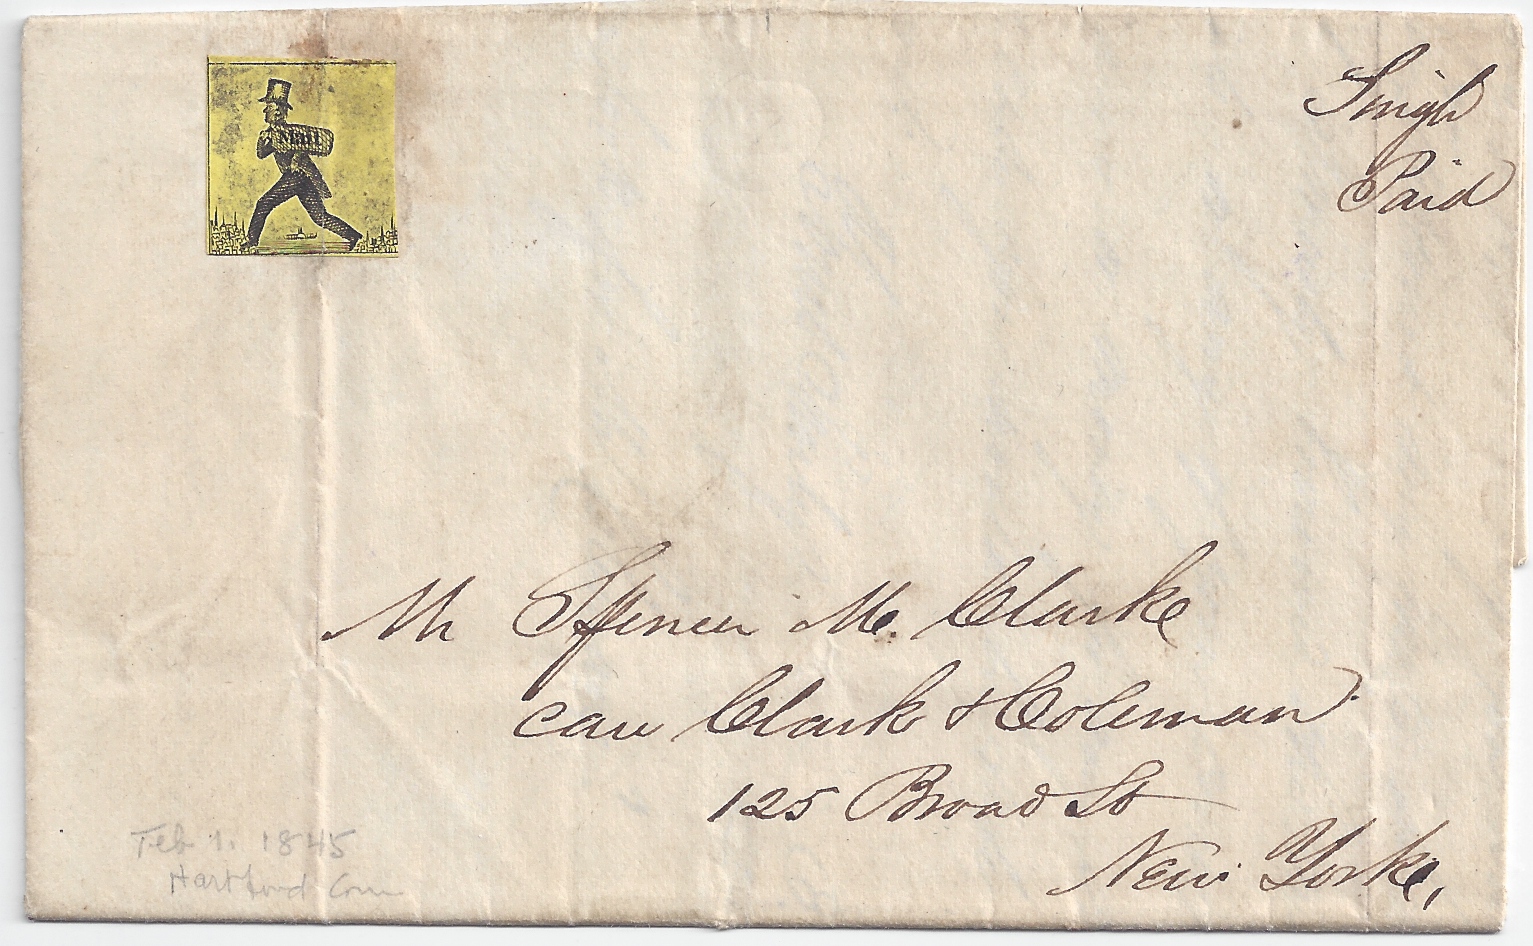 Mail
Single
Paid
Mr Spencer M. Clarke
care Clark & Coleman
125 Broad St
New York,
Feb 1. 1845
Hartford Conn